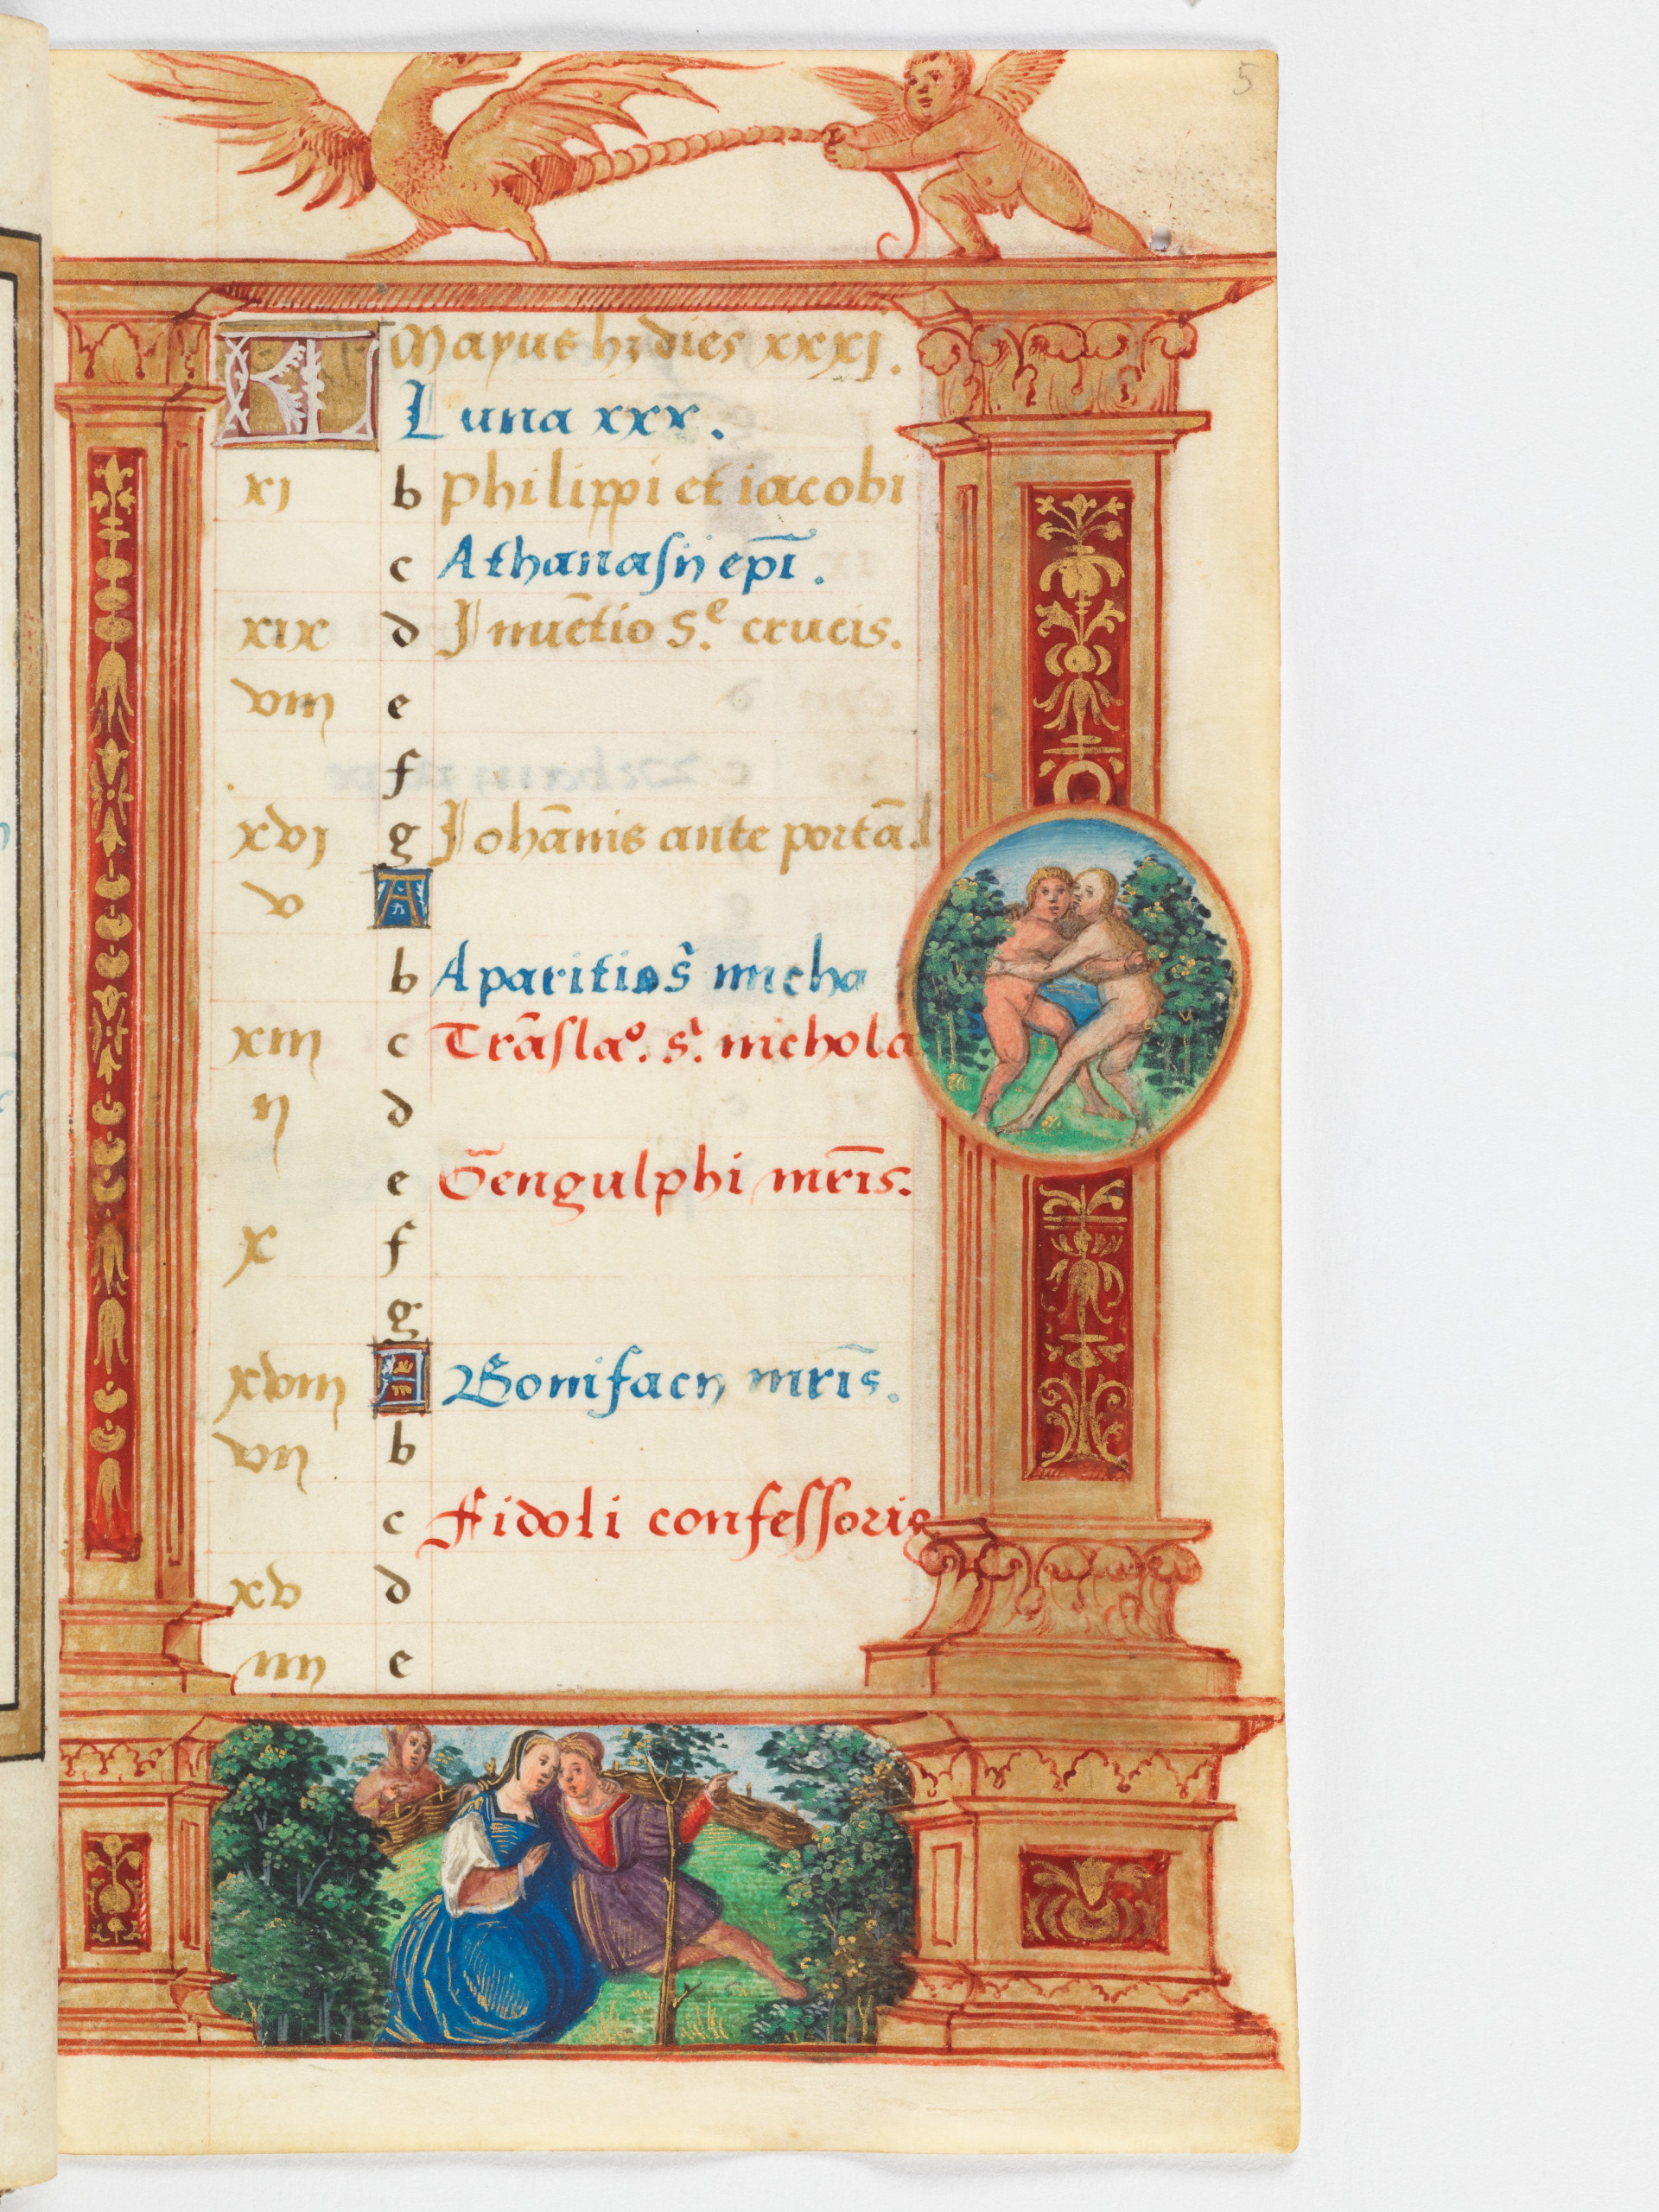 5
KL Mayus hz dies xxxj.
Luna xxx.
xj b philippi et iacobi
c Athanasii epī.
xix d Inuētio S.e crucis.
viii e
f
xvj g Iohānis ante portā.l
v A
b Aparitio s̄ micha
xiii c Trāslao. s. nichola
ii d
e Gengulphi mrīs.
x f
g
xviii A Bonifacii mrīs.
vii b
c Fidoli confessoris
xv d
iiii e